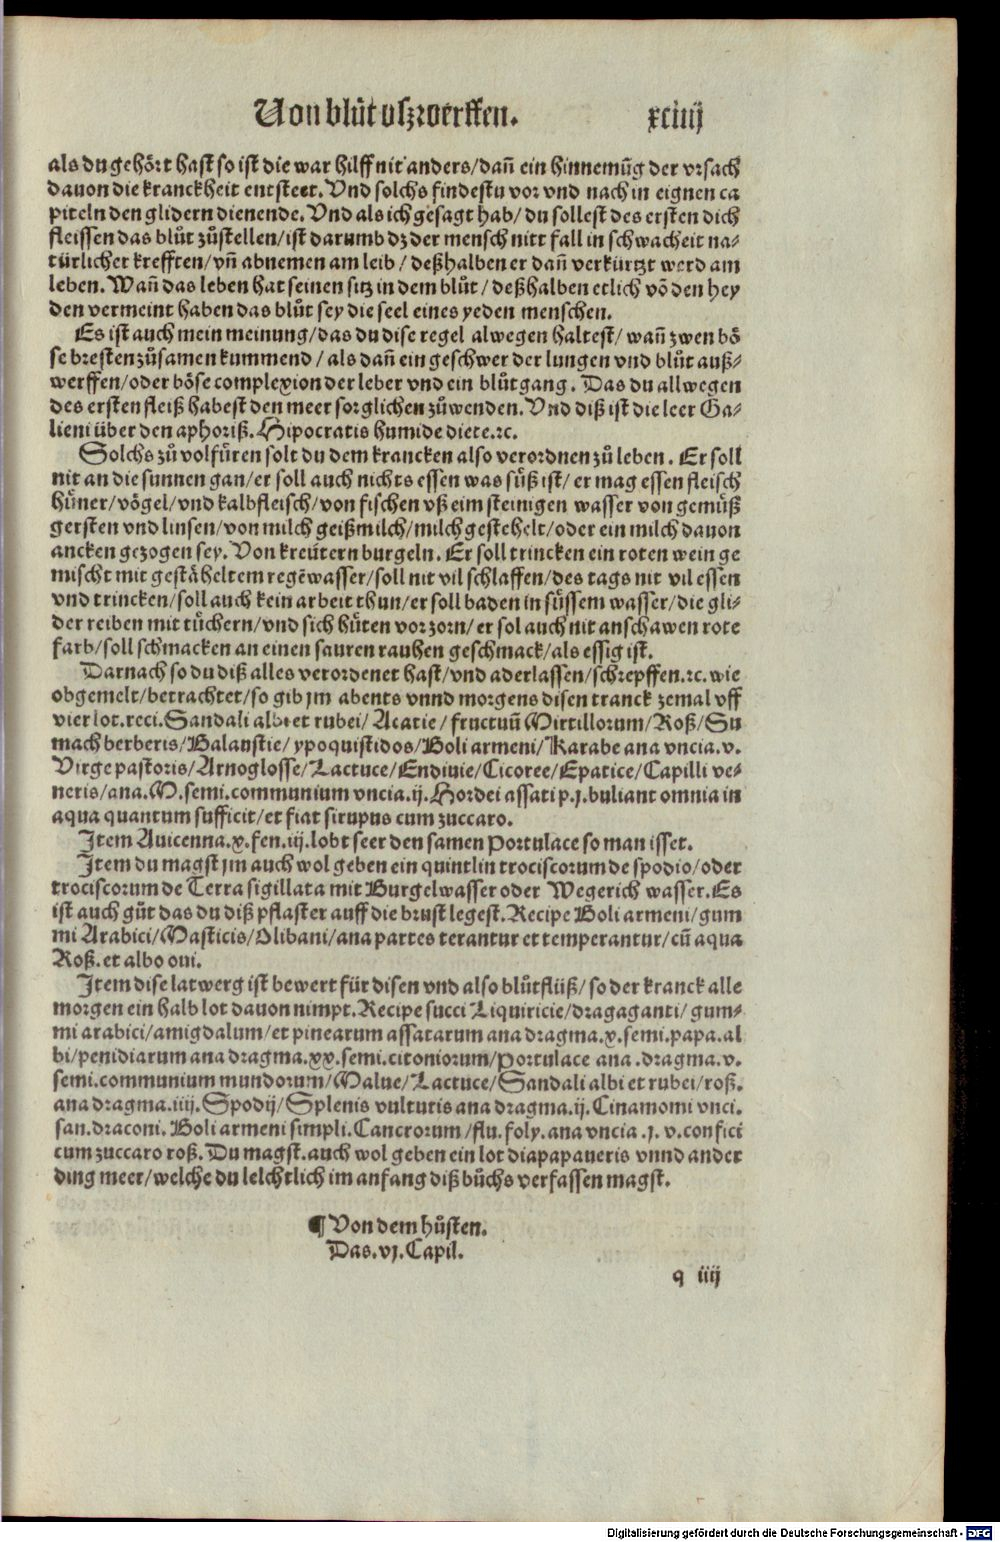 Von blůt vſzwerffen. xciiij
als du gehört hast so ist die war hilff nit anders/dañ ein hinnemũg der vrsach
dauon die kranckheit entsteet. Vnd solchs findestu vor vnd nach in eignen ca
piteln den glidern dienende. Vnd als ich gesagt hab/ du sollest des ersten dich
fleissen das blůt zůstellen/ist darumb dz der mensch nitt fall in schwacheit na-
türlicher krefften/vñ abnemen am leib / deßhalben er dañ verkürtzt werd am
leben. Wañ das leben hat seinen sitz in dem blůt / deßhalben etlich võ den hey
den vermeint haben das blůt sey die seel eines yeden menschen.
Es ist auch mein meinung/das du dise regel alwegen haltest/ wañ zwen bö
se bresten zůsamen kummend / als dañ ein geschwer der lungen vnd blůt auß-
werffen/oder böse complexion der leber vnd ein blůtgang. Das du allwegen
des ersten fleiß habest den meer sorglichen zůwenden. Vnd diß ist die leer Ga-
lieni über den aphoriß. Hipocratis humide diete.ꝛc.
Solchs zů volfüren solt du dem krancken also verordnen zů leben. Er soll
nit an die sunnen gan/er soll auch nichts essen was süß ist/ er mag essen fleisch
hüner/vögel/vnd kalbfleisch/von fischen vß eim steinigen wasser von gemüß
gersten vnd linsen/von milch geißmilch/milch gestehelt/oder ein milch dauon
ancken gezogen sey. Von kreütern burgeln. Er soll trincken ein roten wein ge
mischt mit gestäheltem regẽwasser/soll nit vil schlaffen/des tags nit vil essen
vnd trincken/soll auch kein arbeit thun/er soll baden in süssem wasser/die gli-
der reiben mit tüchern/vnd sich hüten vor zorn/er sol auch nit anschawen rote
farb/soll schmacken an einen sauren rauhen geschmack/als essig ist.
Darnach so du diß alles verordenet hast/vnd aderlassen/schrepffen.ꝛc. wie
obgemelt/betrachtet/so gib jm abents vnnd morgens disen tranck zemal vff
vier lot.reci.Sandali albi et rubei/ Acatie/ fructuũ Mirtillorum/Roß/Su
mach berberis/Balaustie/ypoquistidos/Boli armeni/Karabe ana vncia.v.
Virge pastoris/Arnoglosse/Lactuce/Endiuie/Cicoree/Epatice/Capilli ve-
neris/ana.M.semi.communium vncia.ij.Hordei assati p.j.buliant omnia in
aqua quantum sufficit/et fiat sirupus cum zuccaro.
Item Auicenna.x.fen.iij.lobt seer den samen Portulace so man isset.
Item du magst jm auch wol geben ein quintlin trociscorum de spodio/oder
trociscorum de Terra sigillata mit Burgelwasser oder Wegerich wasser.Es
ist auch gůt das du diß pflaster auff die brust legest.Recipe Boli armeni/gum
mi Arabici/Masticis/Olibani/ana partes terantur et temperantur/cũ aqua
Roß.et albo oui.
Item dise latwerg ist bewert für disen vnd also blůtflüß/so der kranck alle
morgen ein halb lot dauon nimpt.Recipe succi Liquiricie/dragaganti/gum-
mi arabici/amigdalum/et pinearum assatarum ana dragma.x.semi.papa.al
bi/penidiarum ana dragma.xx.semi.citoniorum/Portulace ana .dragma.v.
semi.communium mundorum/Malue/Lactuce/Sandali albi et rubei/roß.
ana dragma.iiij.Spodij/Splenis vulturis ana dragma.ij.Cinamomi vnci.
san.draconi.Boli armeni simpli.Cancrorum/flu.foly.ana vncia .j.v.confici
cum zuccaro roß.Du magst.auch wol geben ein lot diapapaueris vnnd ander
ding meer/welche du leichtlich im anfang diß bůchs verfassen magst.
¶ Von dem hůsten.
Das.vj.Capil.
q iiij
Digitalisierung gefördert durch die Deutsche Forschungsgemeinschaft - DFG